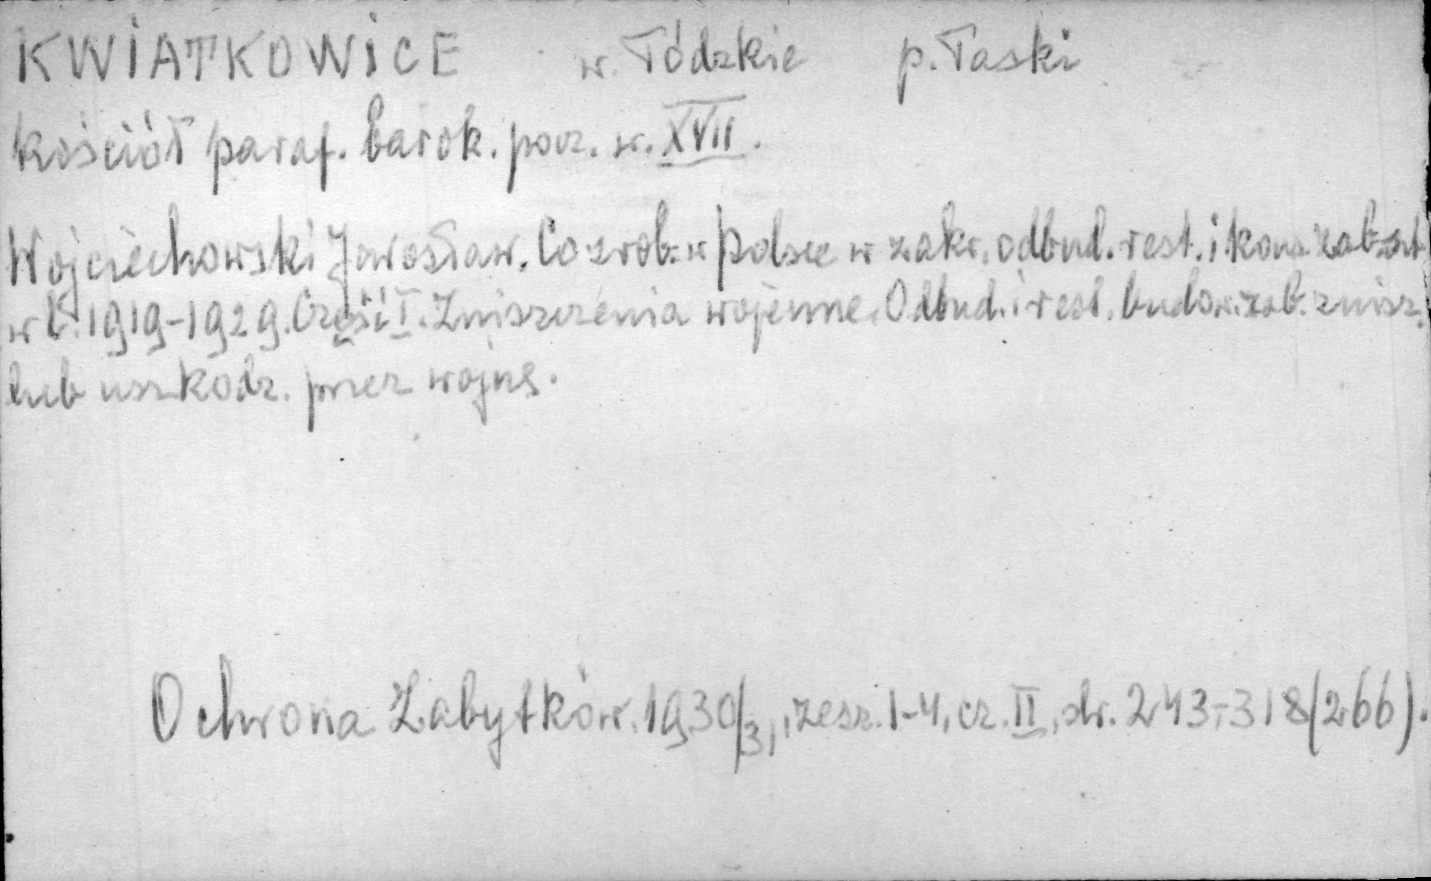 KWIATKOWICE w. Łódzkie p. Łaski
Kościół paraf. barok. pocz. w. XVII.
Wojciechowski Jarosław. Co zrob. w Polsce w zakr. odbud. rest. i kons. zab. szt.
w l. 1919-1929. Część I. Zniszczenia wojenne. Odbud. i rest. budow. zab. znisz.
lub uszkodz. przez wojnę.
Ochrona Zabytków. 1930/31, zesz. 1-4, cz. II, str. 243-318 (266).